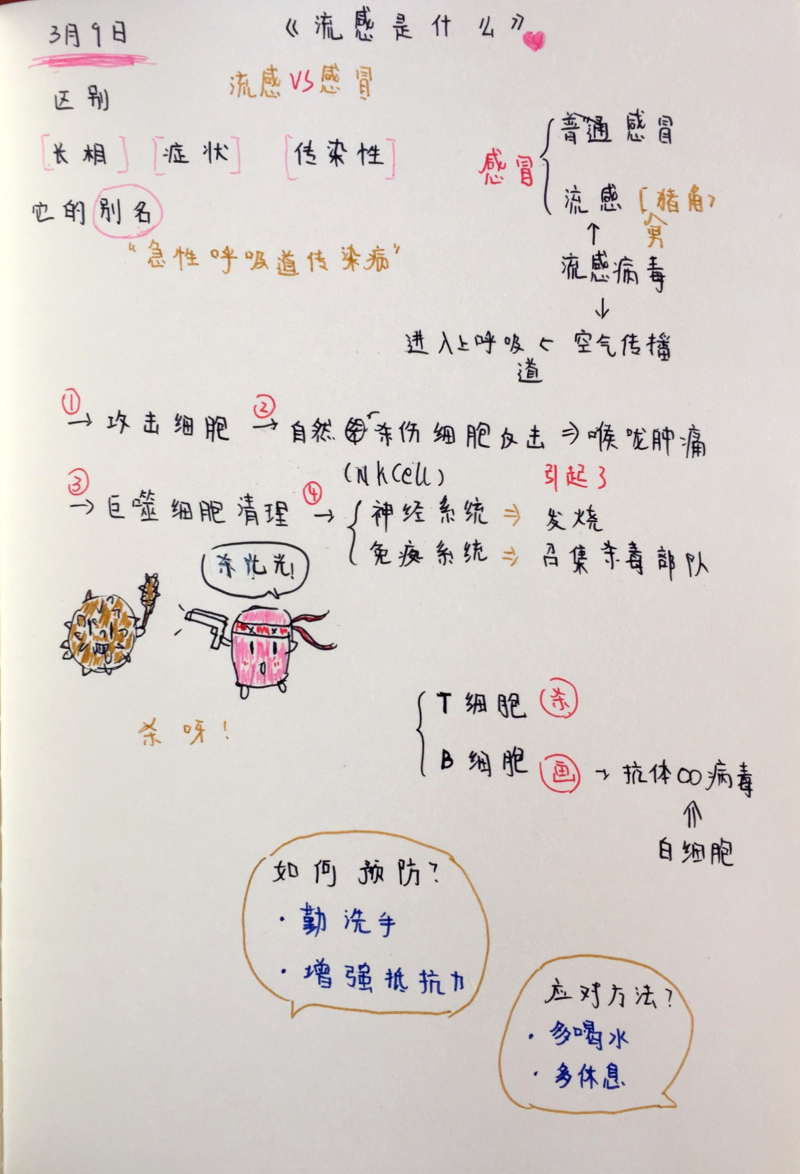 3月9日
《流感是什么》
流感VS感冒
区别
[长相] [症状] [传染性]
它的别名
“急性呼吸道传染病”
感冒
普通感冒
流感 [猪角]
男
↑
流感病毒
↓
进入上呼吸道 ← 空气传播
① → 攻击细胞 ② → 自然杀伤细胞反击 ⇒ 喉咙肿痛
(NK Cell)
引起了
③ → 巨噬细胞清理 ④ → 神经系统 ⇒ 发烧
免疫系统 ⇒ 召集杀毒部队
杀光光!
杀呀!
T 细胞 杀
B 细胞 画 → 抗体∞病毒
⇑
白细胞
如何预防?
· 勤洗手
· 增强抵抗力
应对方法?
· 多喝水
· 多休息